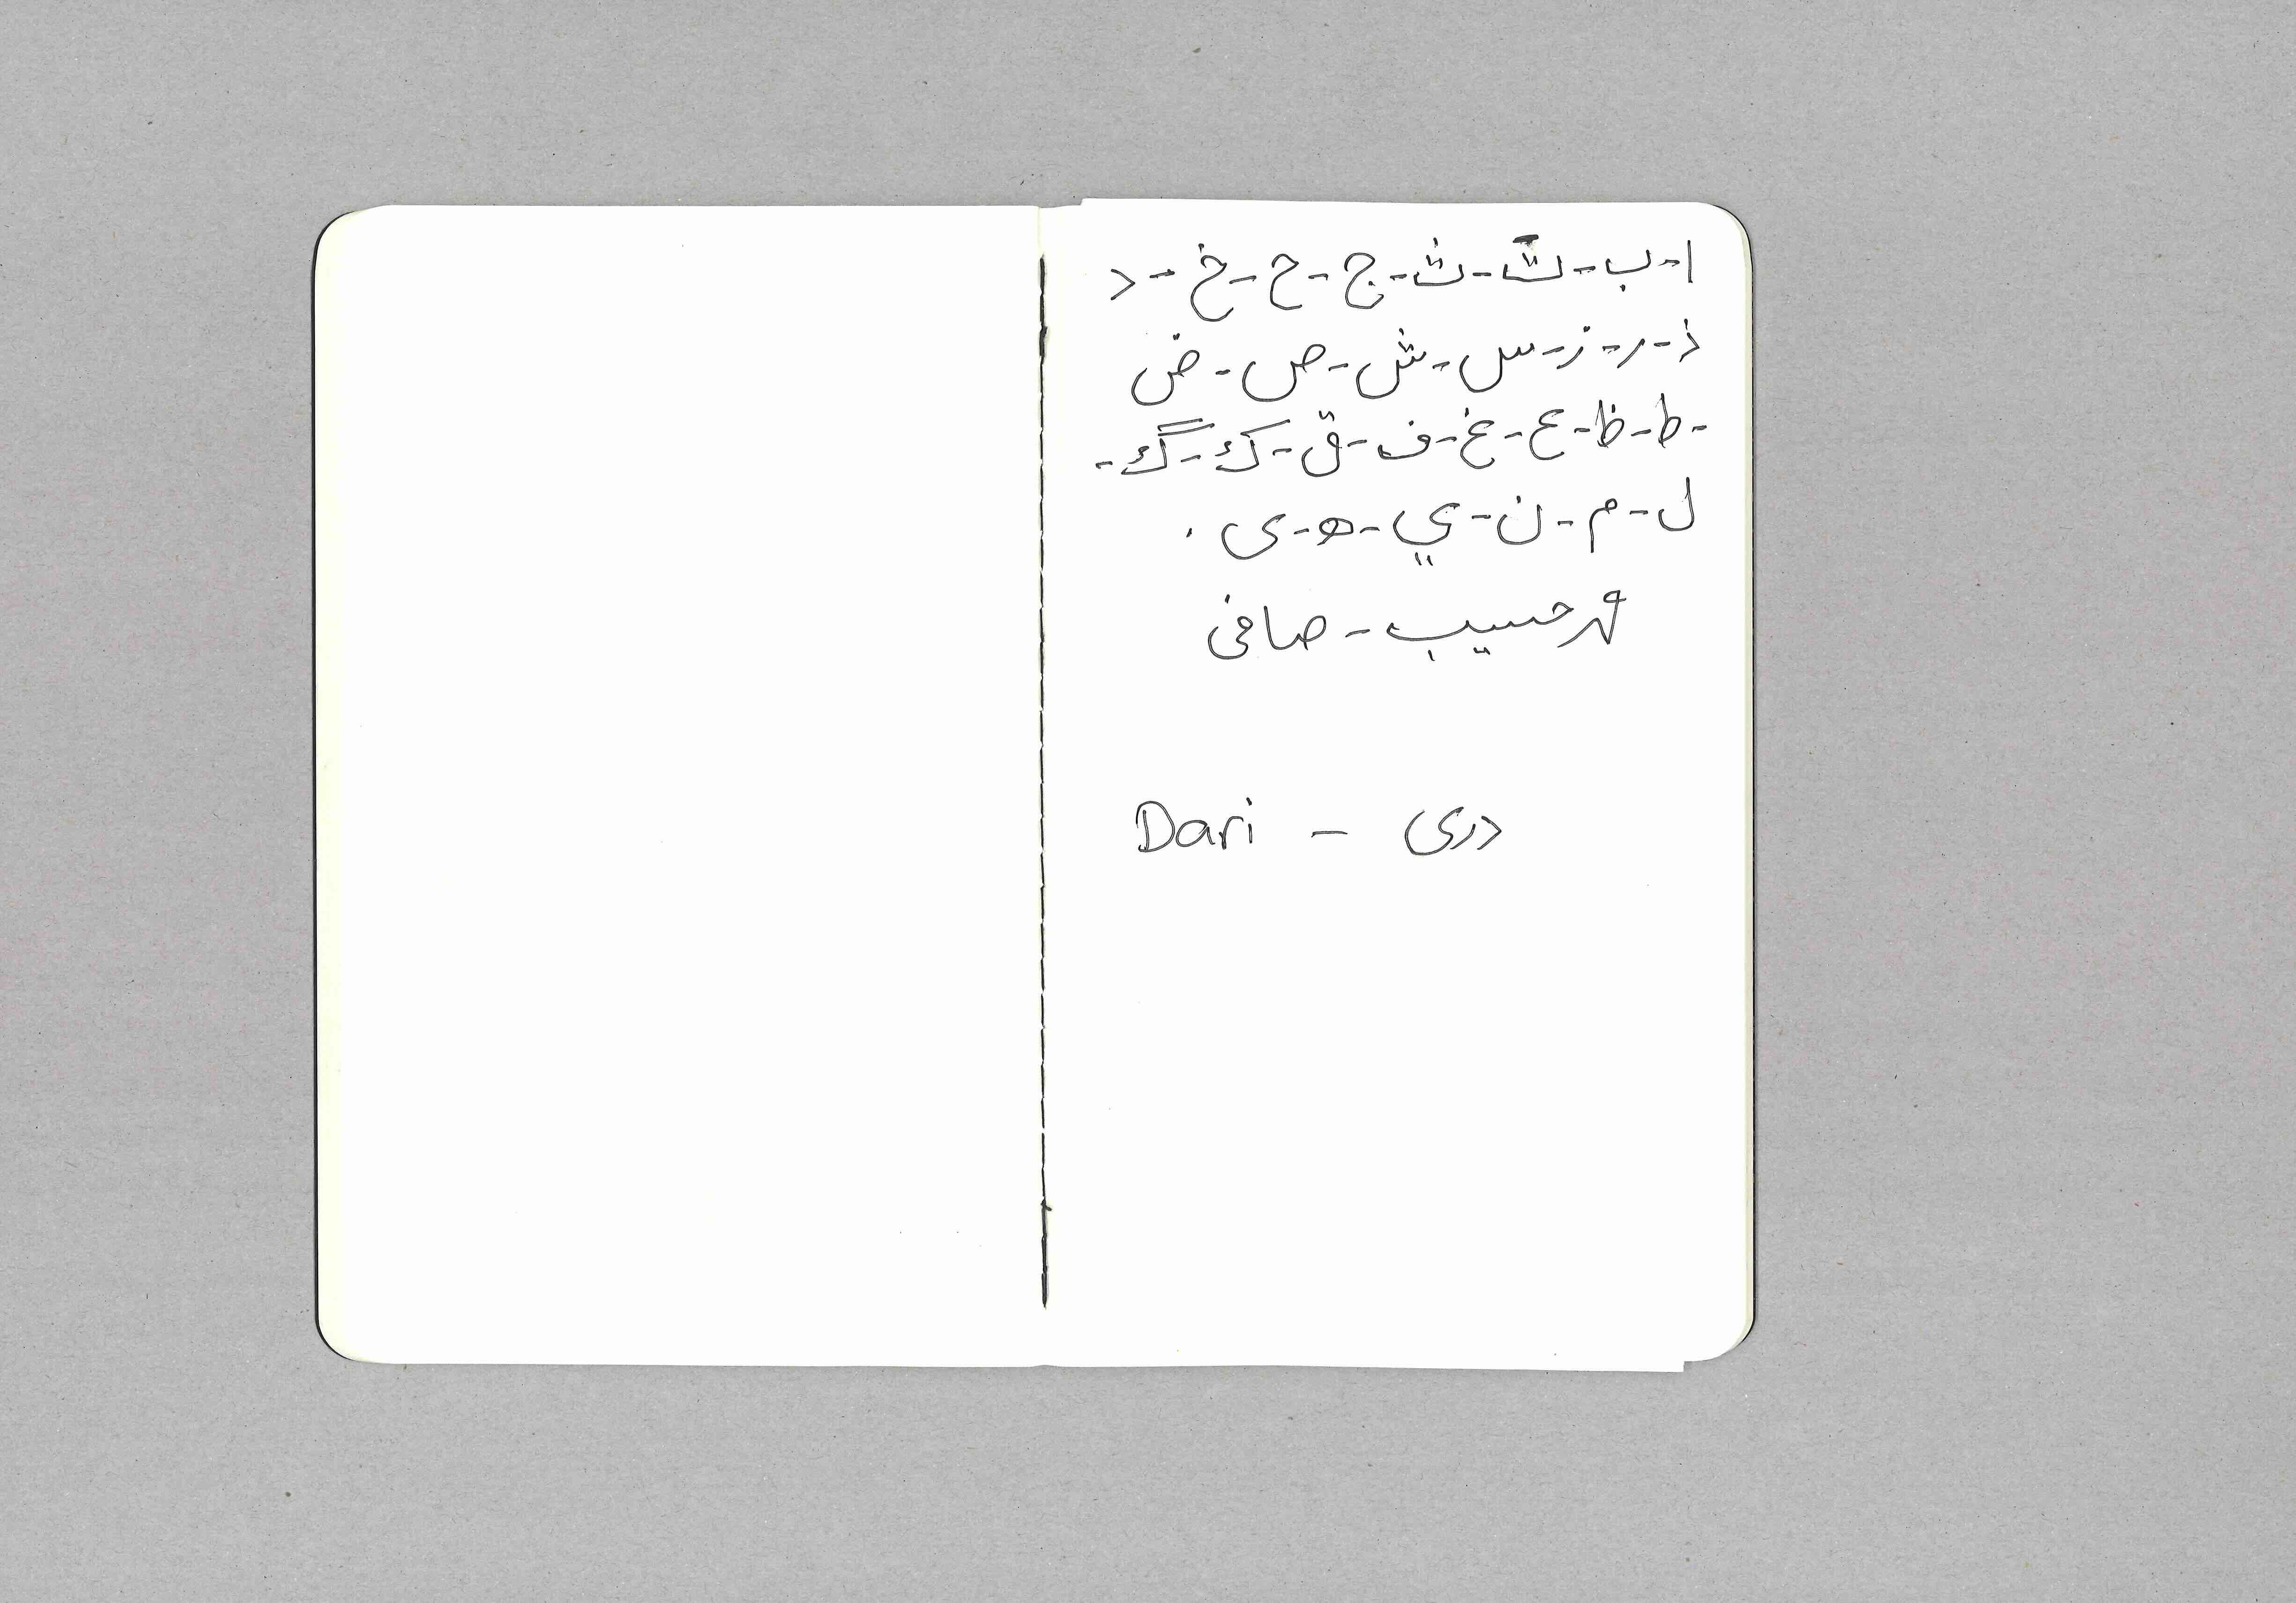 ا - ب - ت - ث - ج - ح - خ - د
ذ - ر - ز - س - ش - ص - ض
- ط - ظ - ع - غ - ف - ق - ک - گ -
ل - م - ن - ي - ه - ی .
حسیب - صافی
Dari - دری